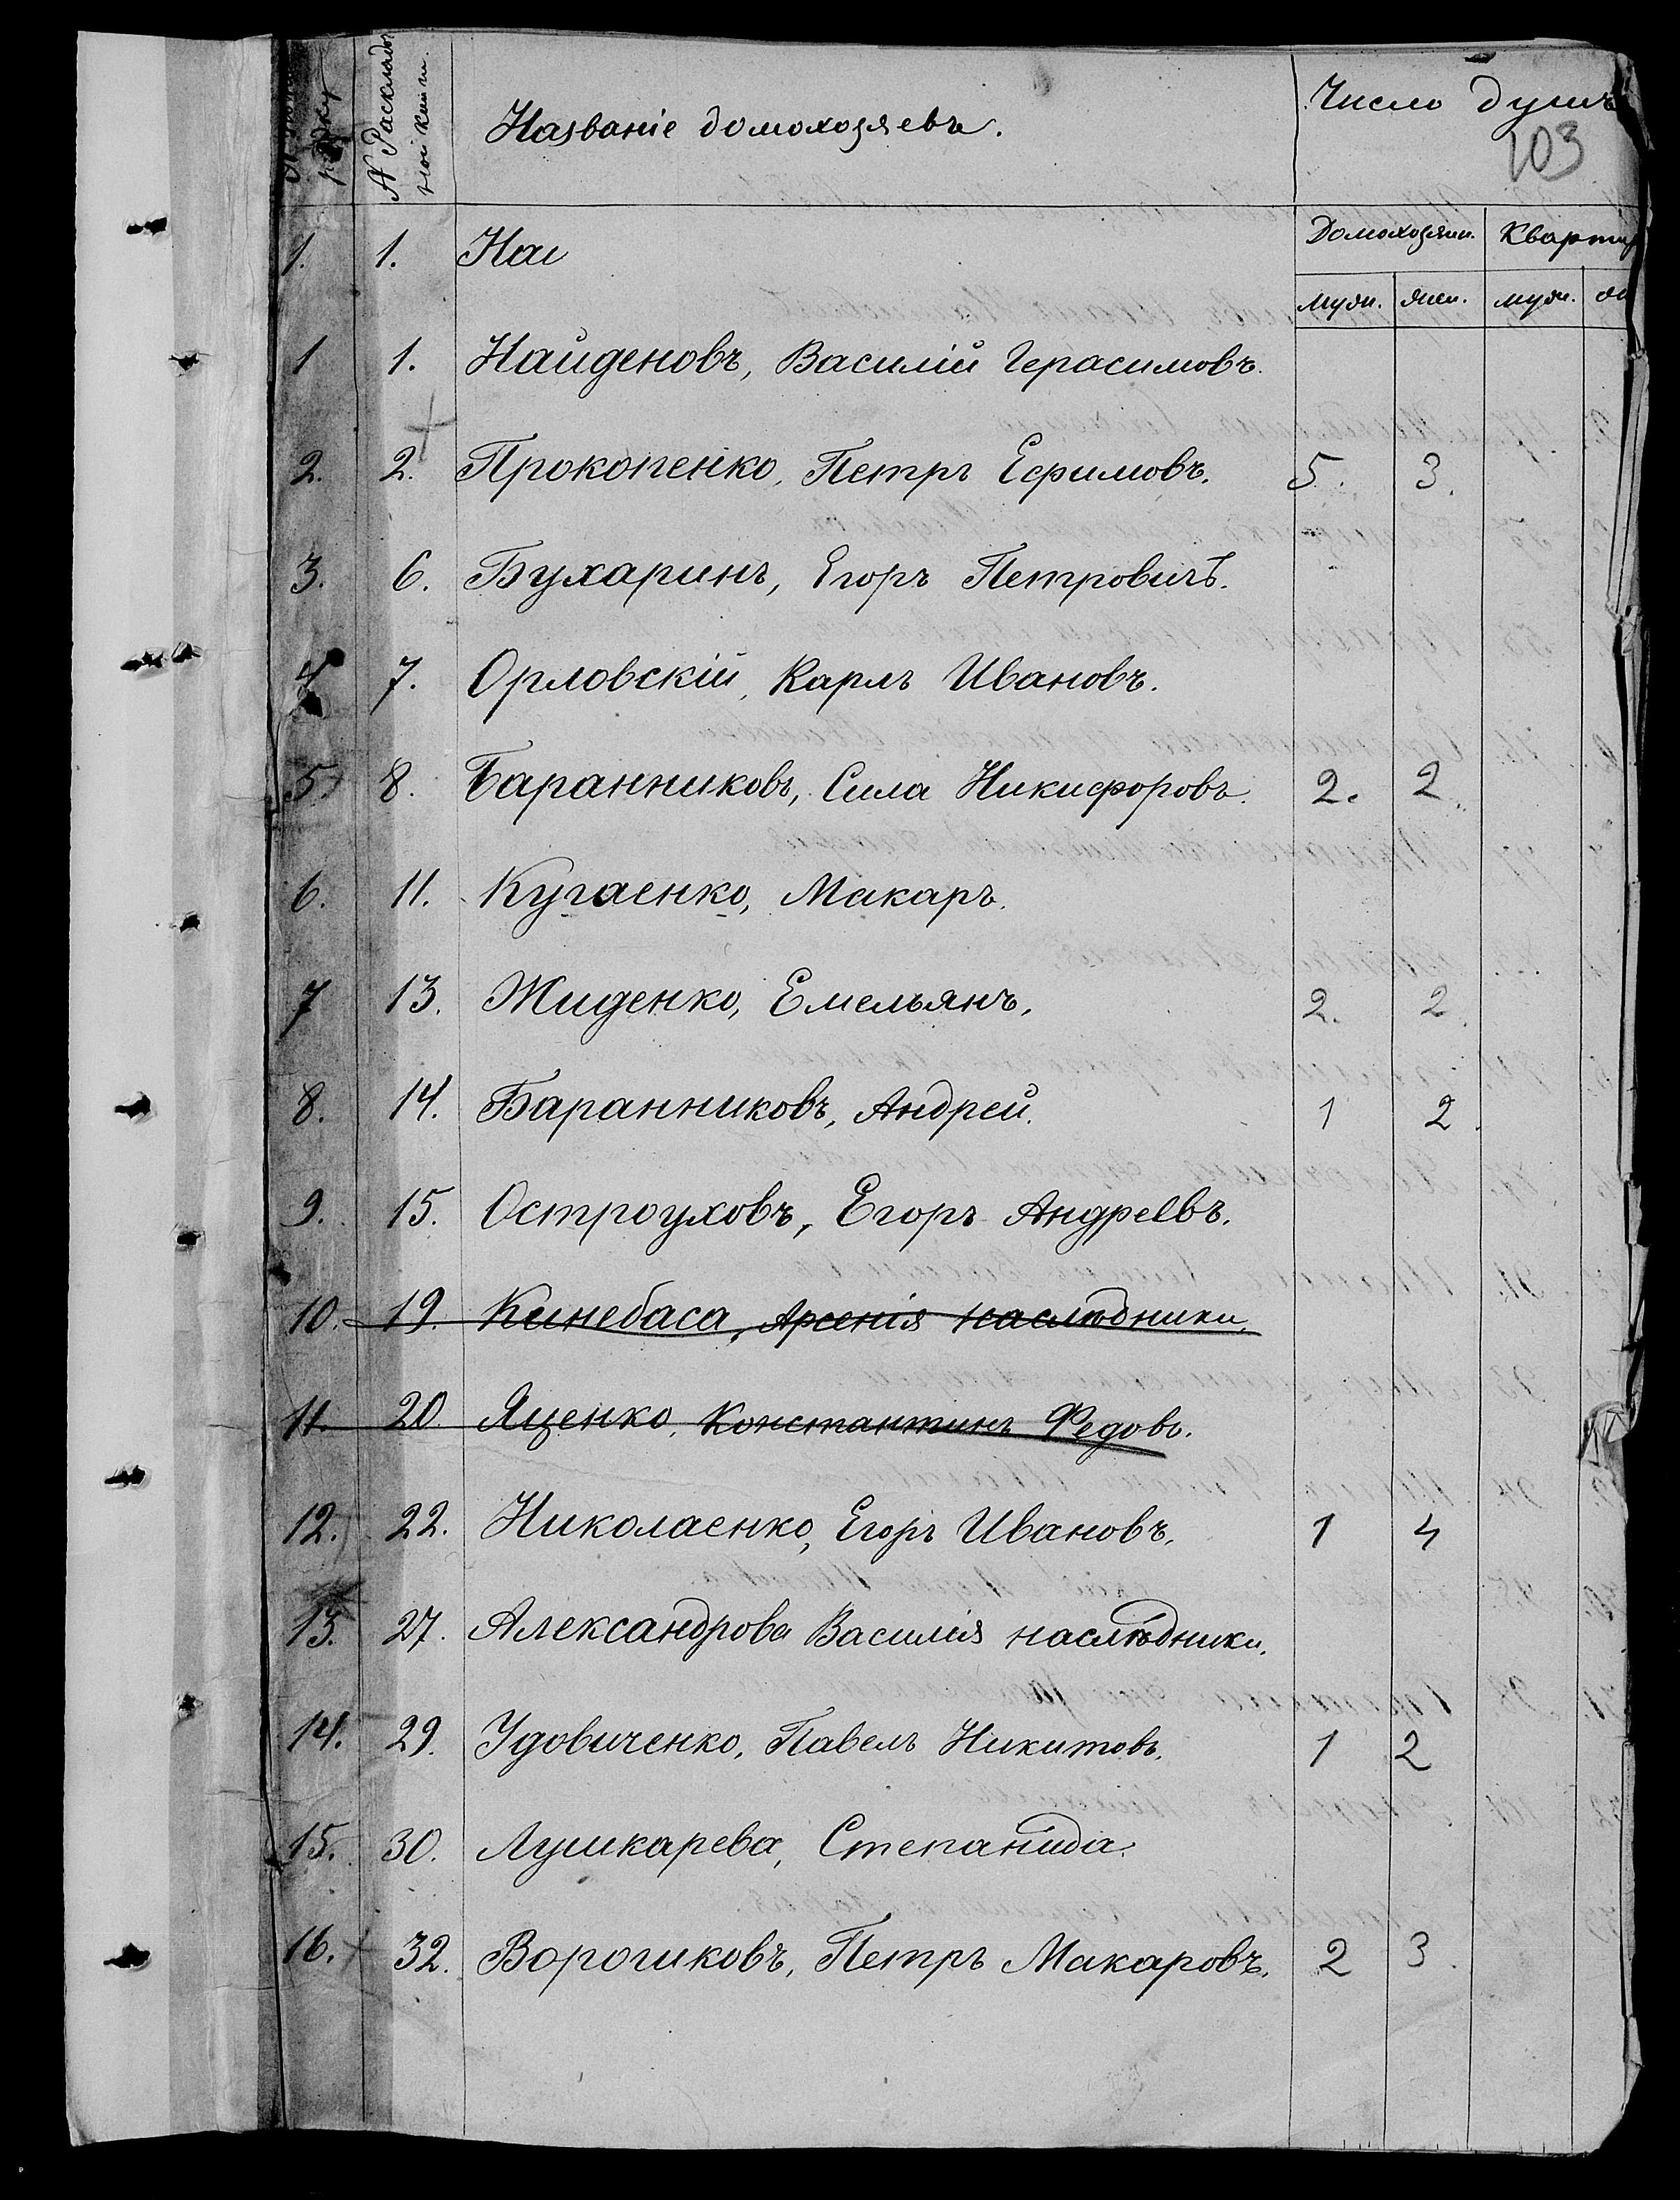 рядку
№ Раскладоч
ной книги.
Названіе домохозяевъ.
Число душъ
103
Домохозяин. Кварти
муж. жен. муж. же
1. 1. Наі
1 1. Найденовъ, Василій Герасимовъ.
2. 2. Прокопенко, Петръ Ефимовъ. 5. 3.
3. 6. Бухаринъ, Егоръ Петровичъ.
4 7. Орловскій, Карлъ Ивановъ.
5 8. Баранниковъ, Сила Никифоровъ. 2. 2
6. 11. Кугаенко, Макаръ.
7 13. Жиденко, Емельянъ. 2. 2.
8. 14. Баранниковъ, Андрей. 1 2.
9. 15. Остроуховъ, Егоръ Андреевъ.
10. 19. Кинебаса, Арсенія наслѣдники.
11. 20 Яценко, Константинъ Федовъ.
12. 22. Николаенко, Егоръ Ивановъ. 1 4
13. 27. Александрова Василія наслѣдники.
14. 29. Удовиченко, Павелъ Никитовъ. 1 2
15. 30. Лушкарева, Степанида.
16. 32. Ворошковъ, Петръ Макаровъ. 2 3.